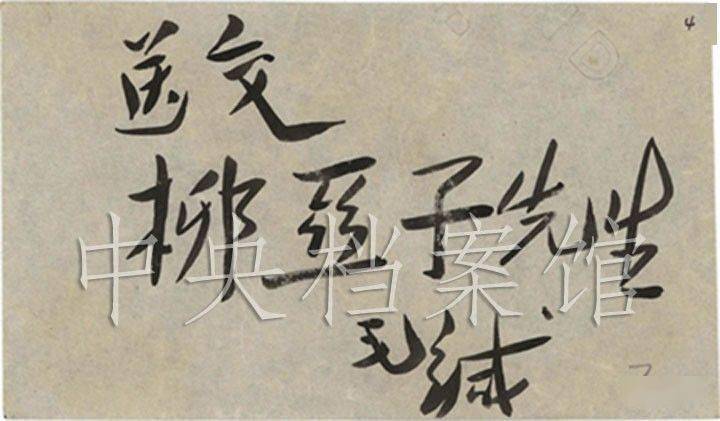 4
送交
柳亞子先生
中央档案馆
毛缄